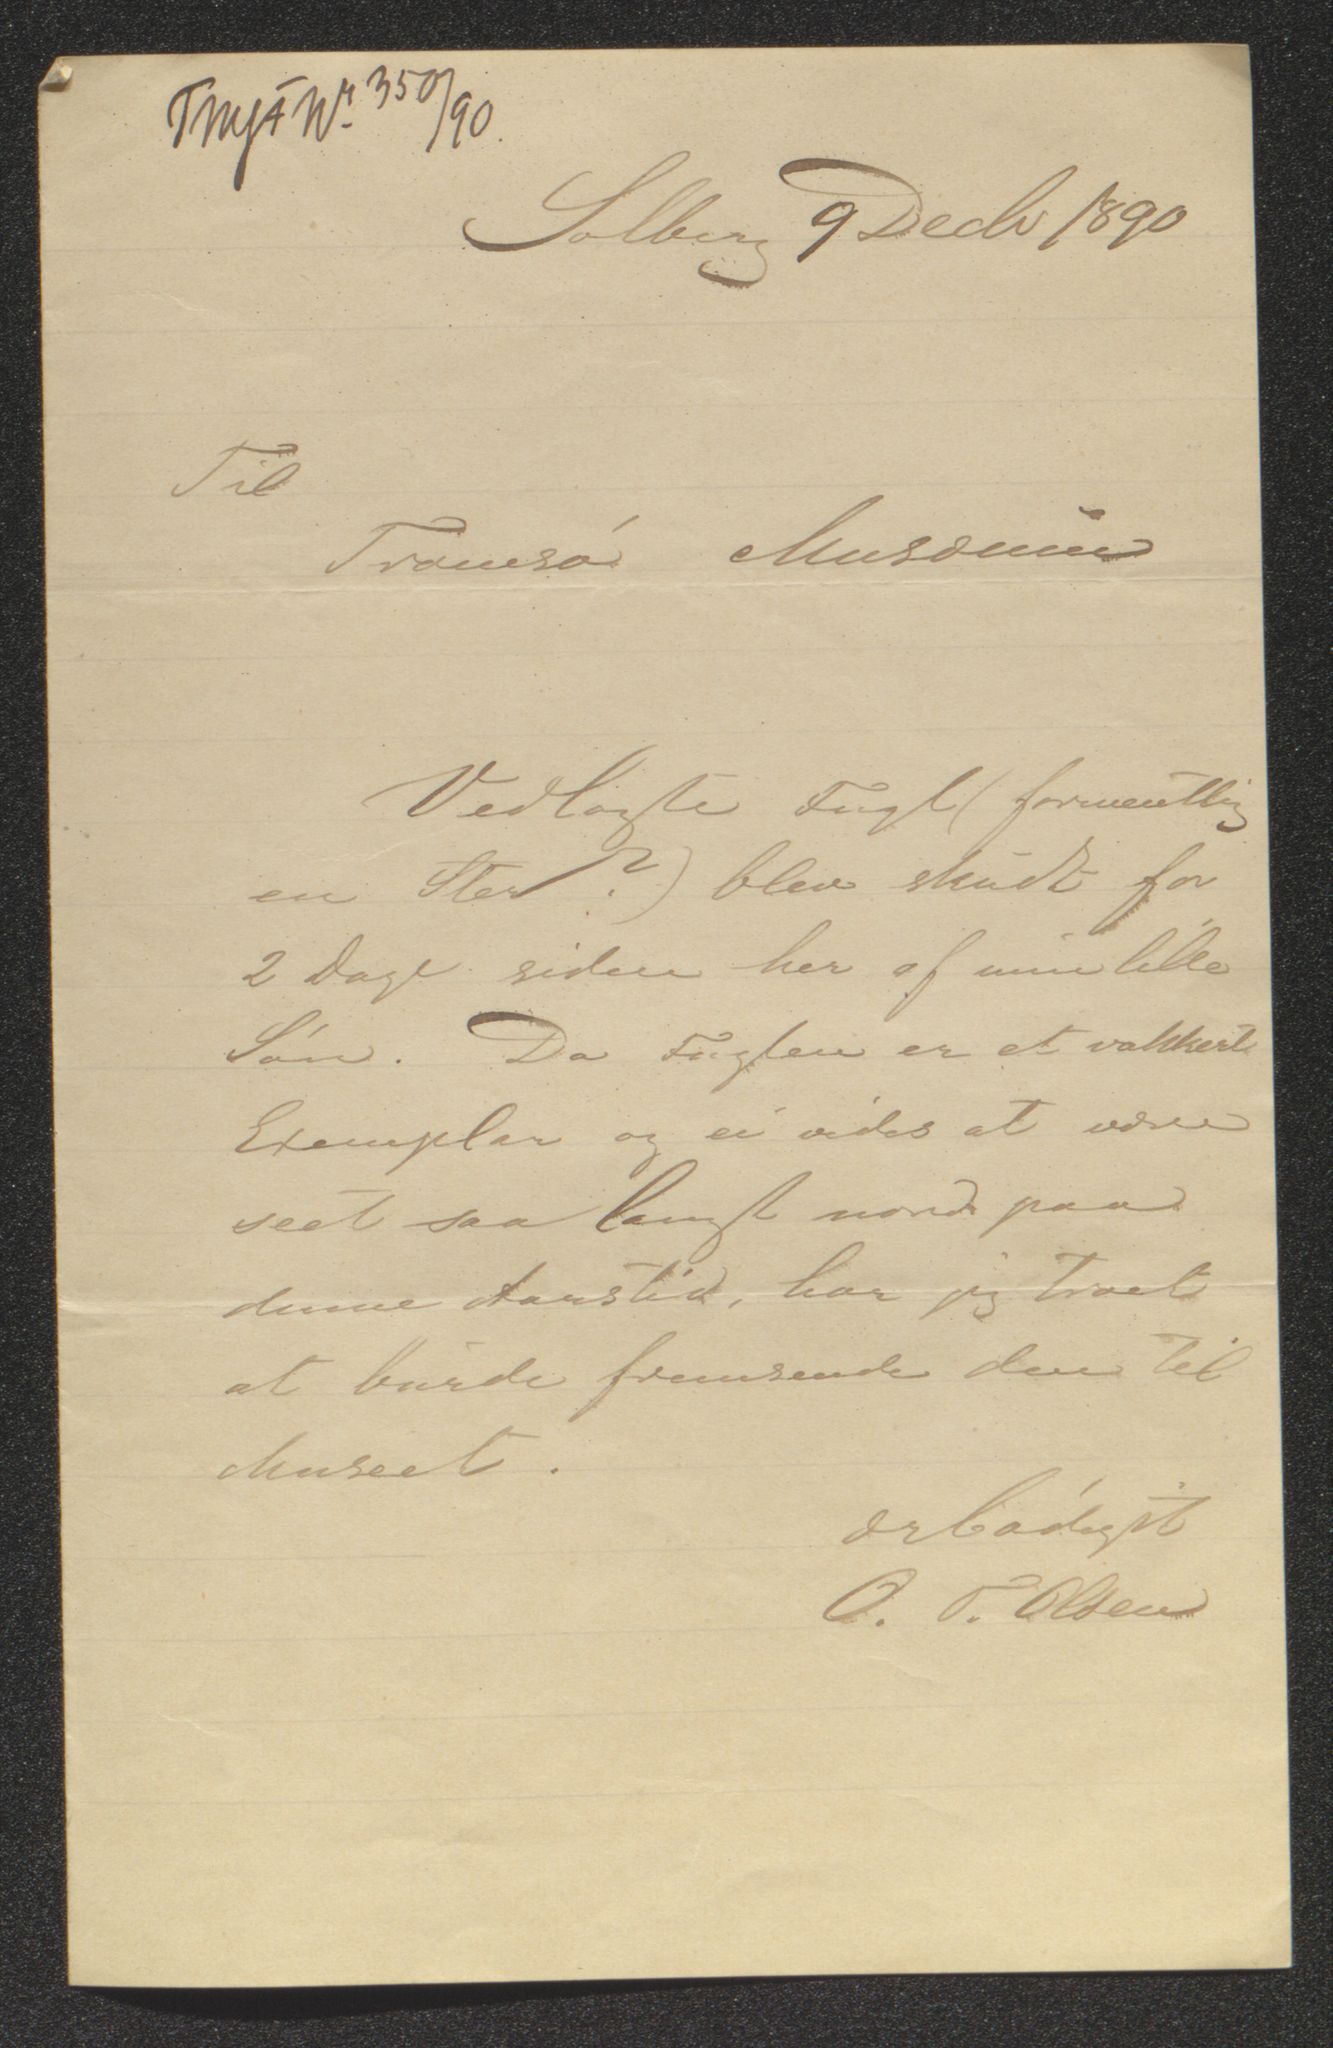 Nr 350/90.
Solberg 9 Decbr 1890
Til
Tromsø Musæum
Vedlagte Fugl (formentlig
en Stær?) blev skudt for
2 Dage siden her af min lille
Søn. Da Fuglen er et vakkert
Exemplar og ei vides at være
seet saa langt nord paa
denne Aarstid, har jeg troet
at burde fremsende den til
Museet.
ærbødigst
O. T. Olsen